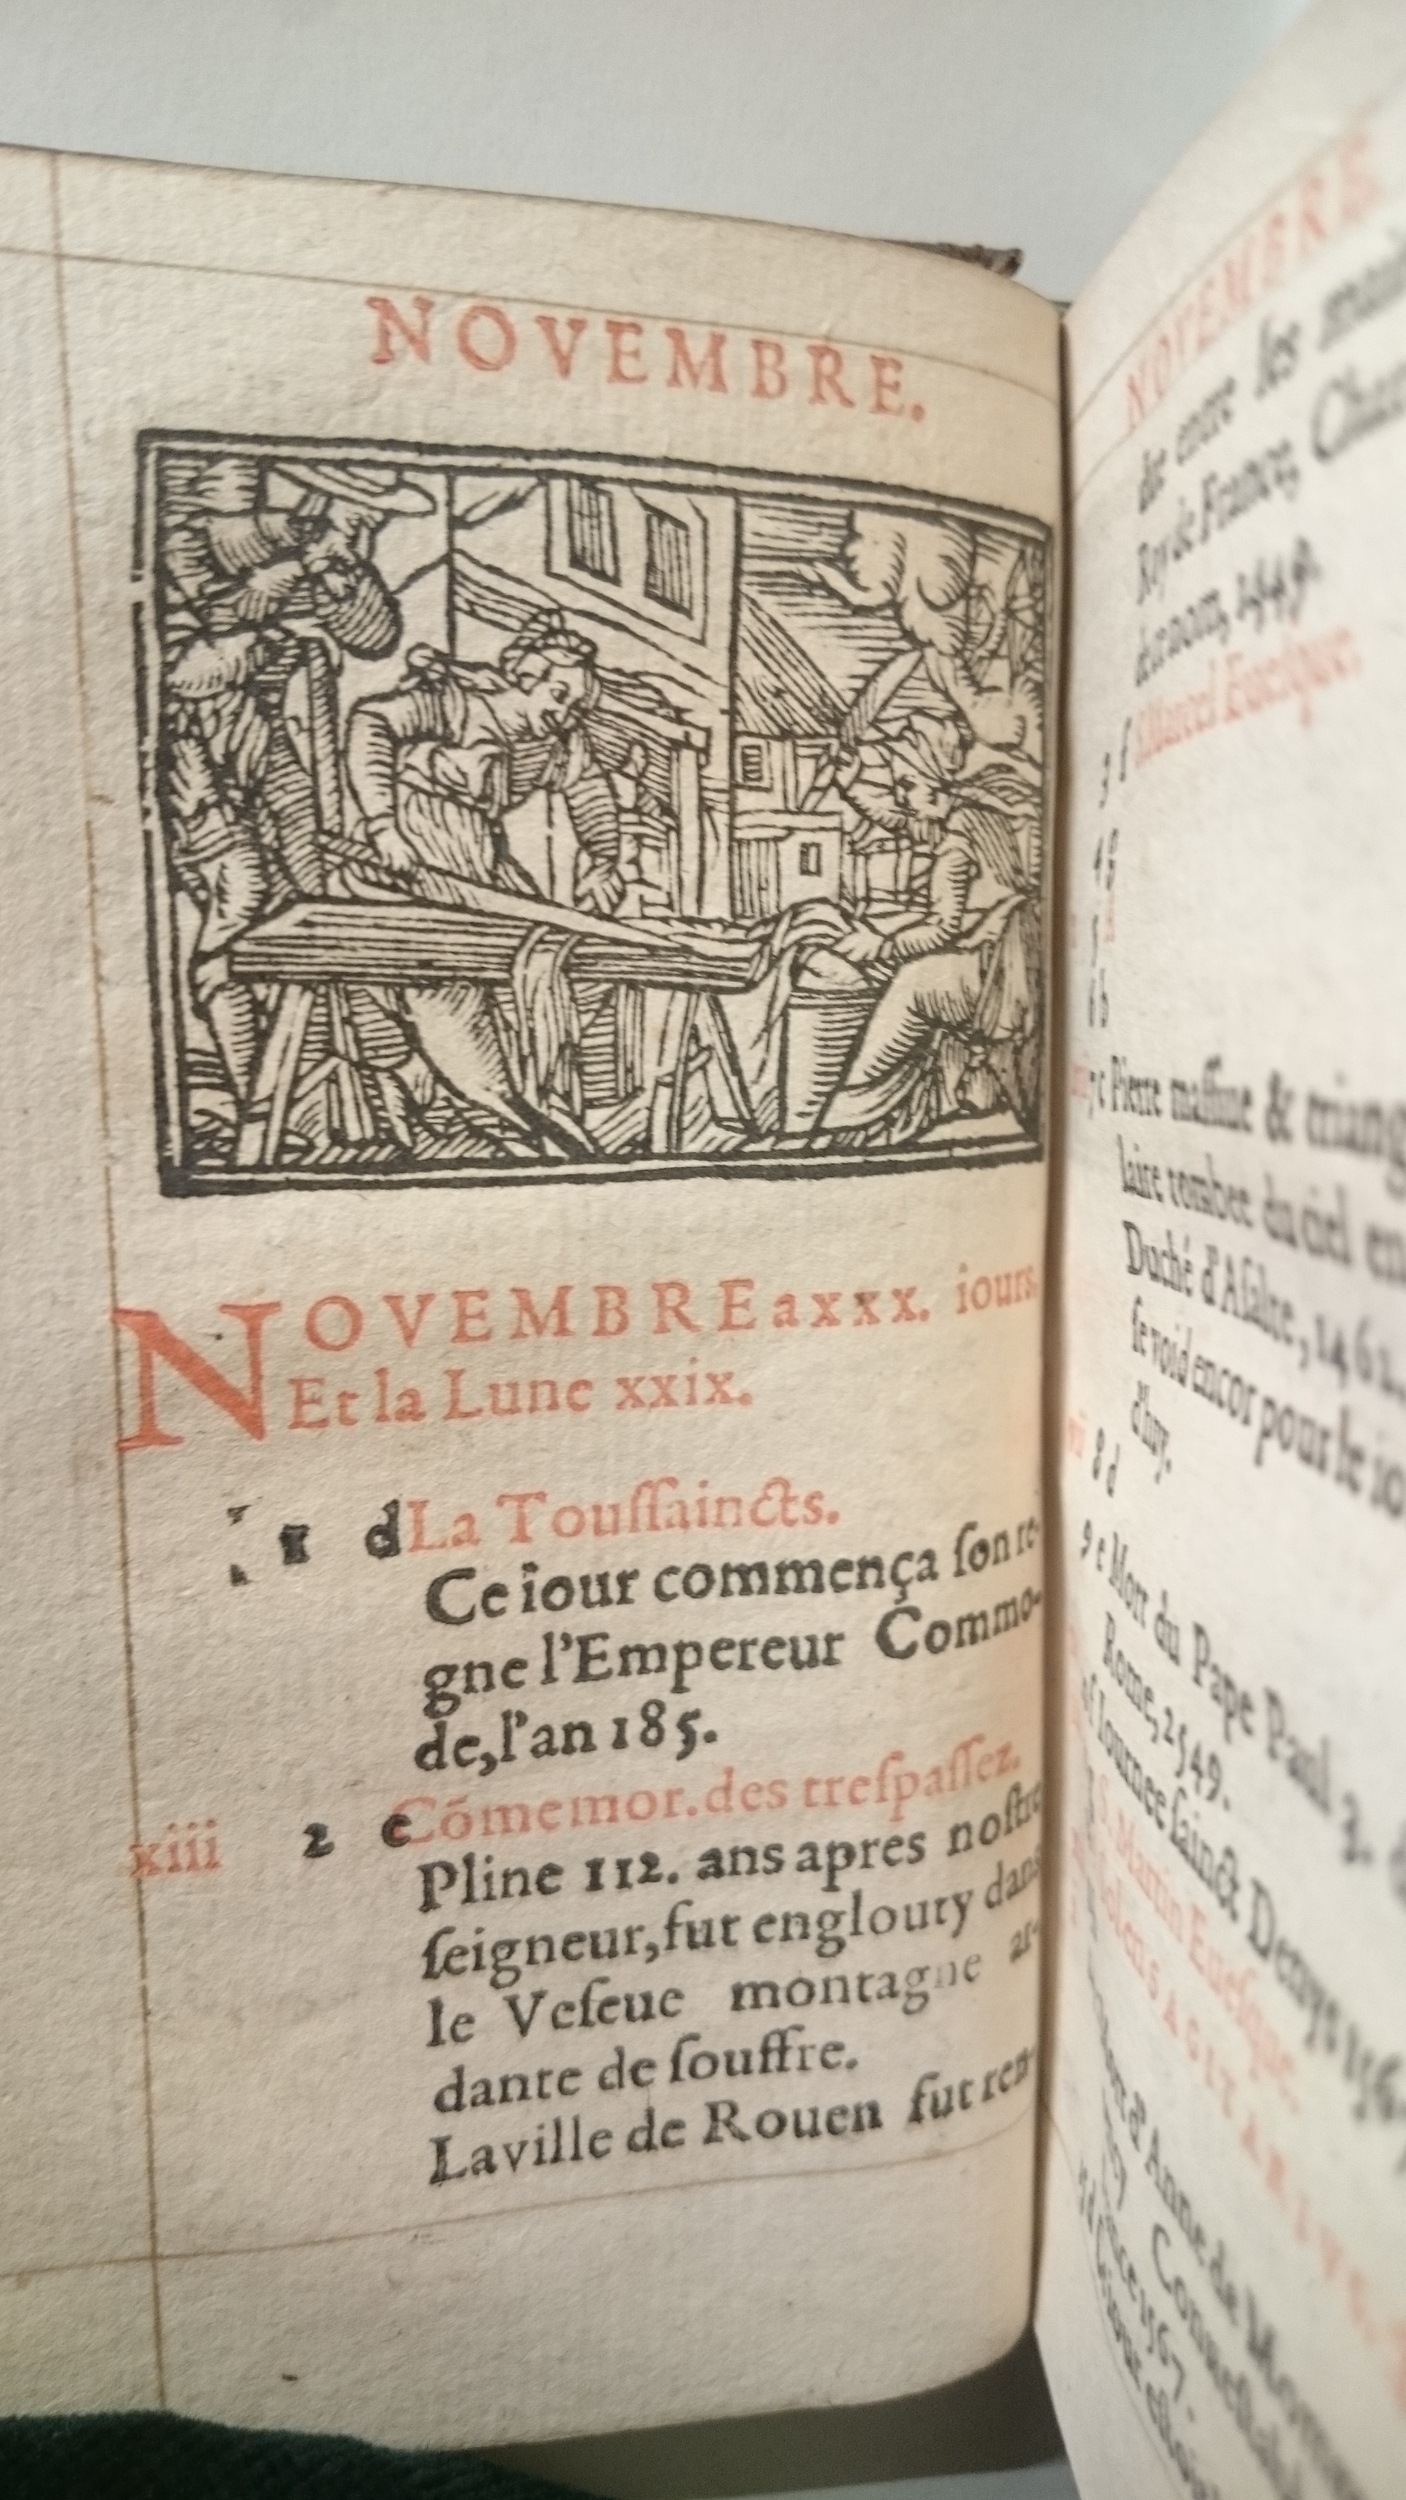 NOVEMBRE.
NOVEMBRE a xxx. iours.
Et la Lune xxix.
1 d La Touſſaincts.
Ce iour commença ſon re-
gne l'Empereur Commo-
de, l'an 185.
xiii 2 e Cõmemor. des treſpaſſez.
Pline 112. ans apres noſtre
ſeigneur, fut englouty dans
le Veſeue montagne ar-
dante de ſouffre.
La ville de Rouen fut ren-
NOVEMBRE.
de entre les
Roy de France, Char
de ce nom, 1449.
3 f S. Marcel Eueſque.
4 g
5 A
6 b
7 c Pierre maſſiue & triang
laire tombee du ciel en
Duché d'Aſaltre, 1462.
ſe void encor pour le io
d'huy.
8 d
9 e Mort du Pape Paul 3.
Rome, 1549.
f Iournee ſainct Denys 156
S. Martin Eueſque.
Sol en SAGITARIVS.
d'Anne de Mom
Conneſtab
1567.